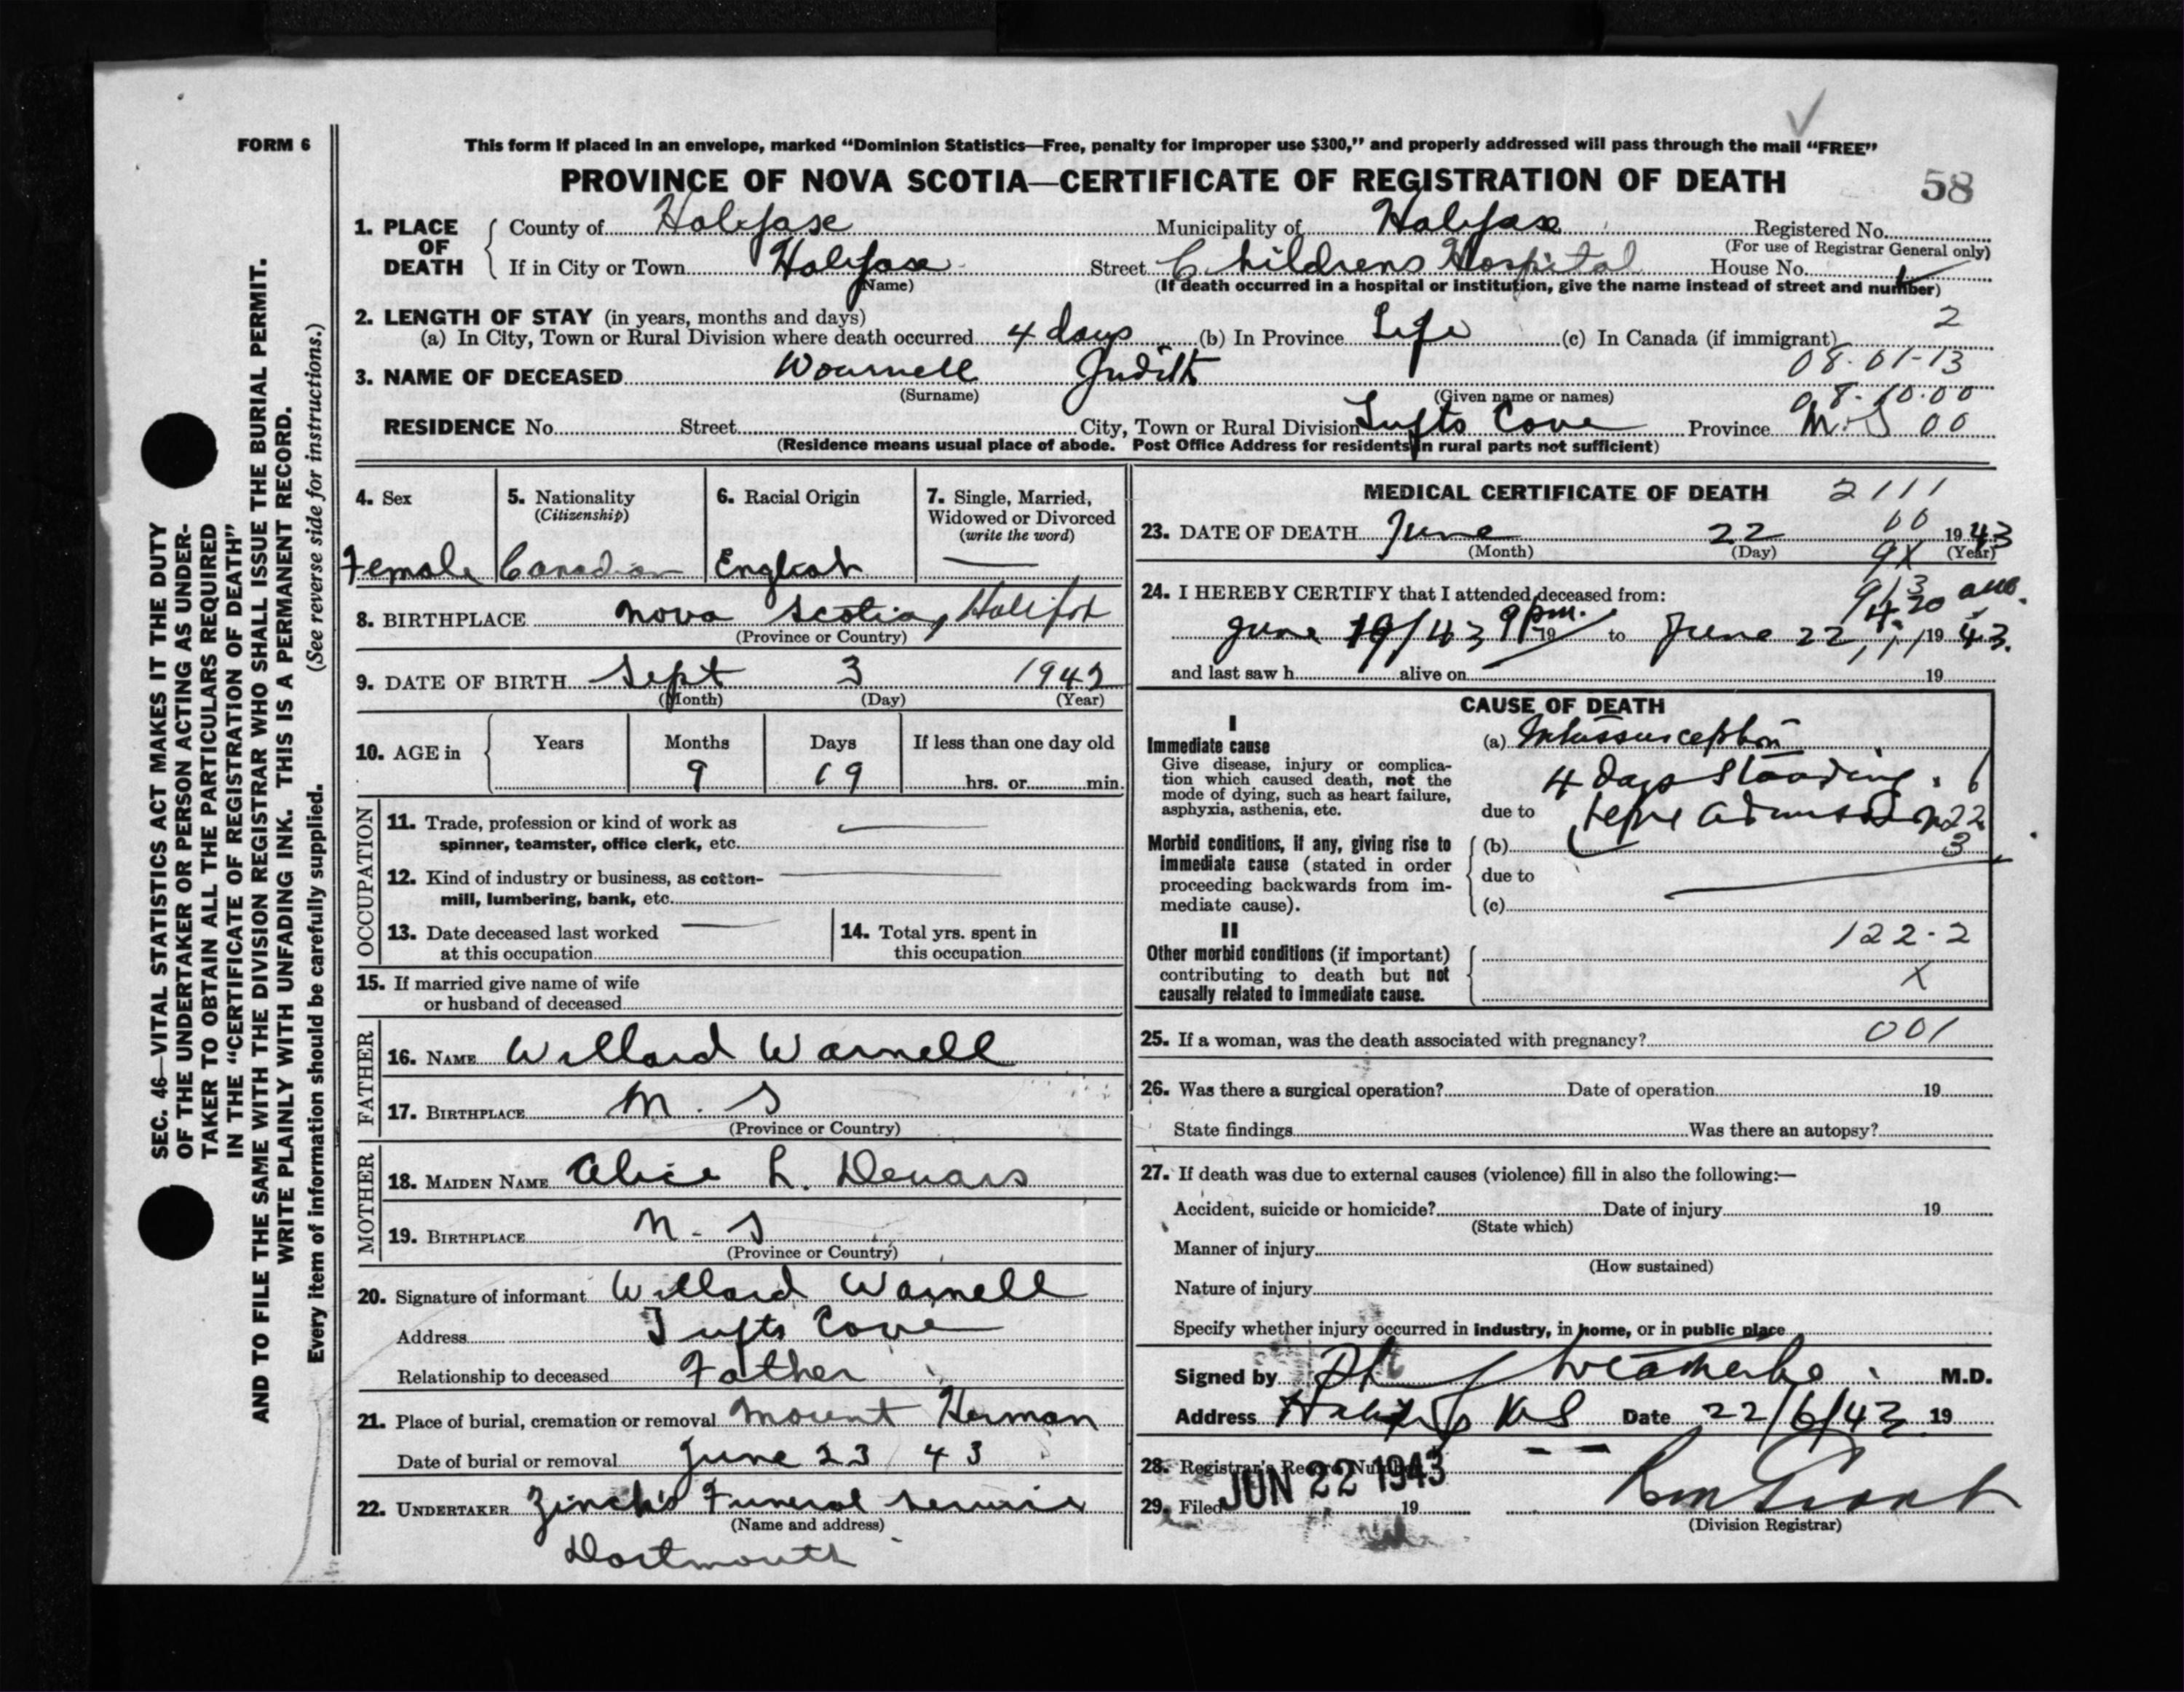 FORM 6
This form if placed in an envelope, marked “Dominion Statistics—Free, penalty for improper use $300,” and properly addressed will pass through the mail “FREE”
PROVINCE OF NOVA SCOTIA—CERTIFICATE OF REGISTRATION OF DEATH
58
1. PLACE OF DEATH
County of Halifax Municipality of Halifax Registered No.
(For use of Registrar General only)
If in City or Town Halifax Street Childrens Hospital House No.
(Name) (If death occurred in a hospital or institution, give the name instead of street and number)
2. LENGTH OF STAY (in years, months and days) 2
(a) In City, Town or Rural Division where death occurred 4 days (b) In Province Life (c) In Canada (if immigrant)
08-01-13
3. NAME OF DECEASED Wournell Judith
(Surname) (Given name or names) 08-10-00
RESIDENCE No. Street City, Town or Rural Division Tufts Cove Province N.S 00
(Residence means usual place of abode. Post Office Address for residents in rural parts not sufficient)
4. Sex Female
5. Nationality (Citizenship) Canadian
6. Racial Origin English
7. Single, Married, Widowed or Divorced (write the word) —
8. BIRTHPLACE Nova Scotia, Halifax
(Province or Country)
9. DATE OF BIRTH Sept 3 1942
(Month) (Day) (Year)
10. AGE in Years Months Days If less than one day old
9 19 hrs. or min.
OCCUPATION
11. Trade, profession or kind of work as spinner, teamster, office clerk, etc. —
12. Kind of industry or business, as cotton-mill, lumbering, bank, etc. —
13. Date deceased last worked at this occupation —
14. Total yrs. spent in this occupation
15. If married give name of wife or husband of deceased
FATHER
16. NAME Willard Warnell
17. BIRTHPLACE N. S
(Province or Country)
MOTHER
18. MAIDEN NAME Alice L.
19. BIRTHPLACE N. S
(Province or Country)
20. Signature of informant Willard Warnell
Address Tufts Cove
Relationship to deceased Father
21. Place of burial, cremation or removal Mount Herman
Date of burial or removal June 23 / 43
22. UNDERTAKER Zinck's Funeral Service
(Name and address)
Dartmouth
MEDICAL CERTIFICATE OF DEATH 2111
23. DATE OF DEATH June 22 1943
(Month) (Day) (Year)
24. I HEREBY CERTIFY that I attended deceased from:
June 19/43 9 pm. 19 to June 22, 19 43.
and last saw h alive on 19
CAUSE OF DEATH
I
Immediate cause
Give disease, injury or complication which caused death, not the mode of dying, such as heart failure, asphyxia, asthenia, etc.
(a) Intussusception
4 days standing
due to before admission
Morbid conditions, if any, giving rise to immediate cause (stated in order proceeding backwards from immediate cause).
(b) 3
due to
(c)
II
Other morbid conditions (if important) contributing to death but not causally related to immediate cause.
122-2
X
25. If a woman, was the death associated with pregnancy? 001
26. Was there a surgical operation? Date of operation 19
State findings Was there an autopsy?
27. If death was due to external causes (violence) fill in also the following:—
Accident, suicide or homicide? Date of injury 19
(State which)
Manner of injury
(How sustained)
Nature of injury
Specify whether injury occurred in industry, in home, or in public place
Signed by M.D.
Address Halifax NS Date 22/6/43 19
28. Registrar's Record Number
29. Filed JUN 22 1943 19
(Division Registrar)
SEC. 46—VITAL STATISTICS ACT MAKES IT THE DUTY
OF THE UNDERTAKER OR PERSON ACTING AS UNDER-
TAKER TO OBTAIN ALL THE PARTICULARS REQUIRED
IN THE “CERTIFICATE OF REGISTRATION OF DEATH”
AND TO FILE THE SAME WITH THE DIVISION REGISTRAR WHO SHALL ISSUE THE BURIAL PERMIT.
WRITE PLAINLY WITH UNFADING INK. THIS IS A PERMANENT RECORD.
Every item of information should be carefully supplied. (See reverse side for instructions.)